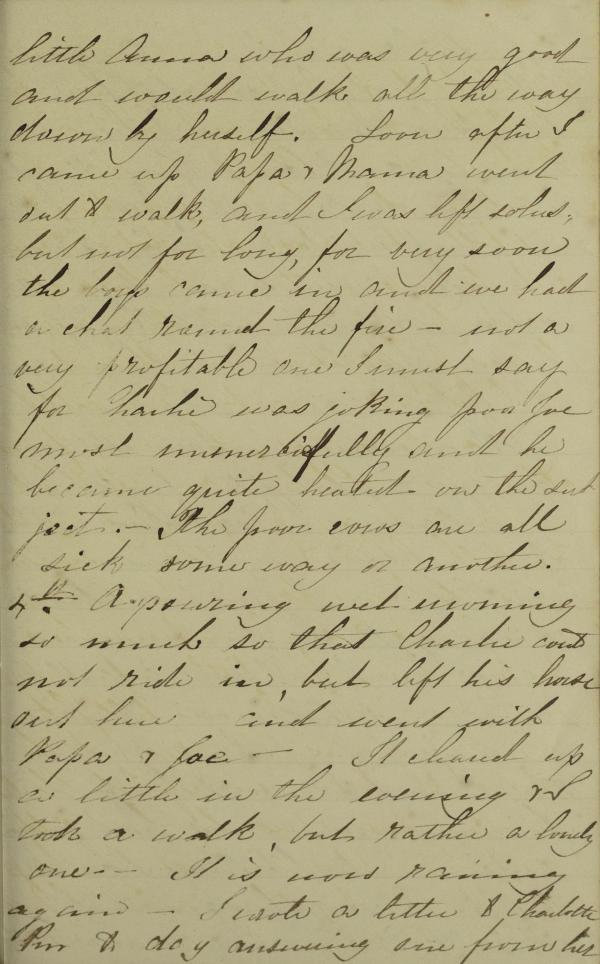 little Anna who was very good
and would walk all the way
down by herself. Soon after I
came up Papa & Mama went
out to walk, and I was left solus,
but not for long, for very soon
the boys came in and we had
a chat round the fire - not a
very profitable one I must say
for Charlie was joking poor Joe
most unmercifully and he
became quite heated on the sub
ject. - The poor cows are all
sick some way or another.
4th. A pouring wet morning
so much so that Charlie coud
not ride in, but left his horse
out here and went with
Papa & Joe - It cleared up
a little in the evening & I
took a walk, but rather a lonely
one - - It is now raining
again - I wrote a letter to Charlotte
to day answering one from her